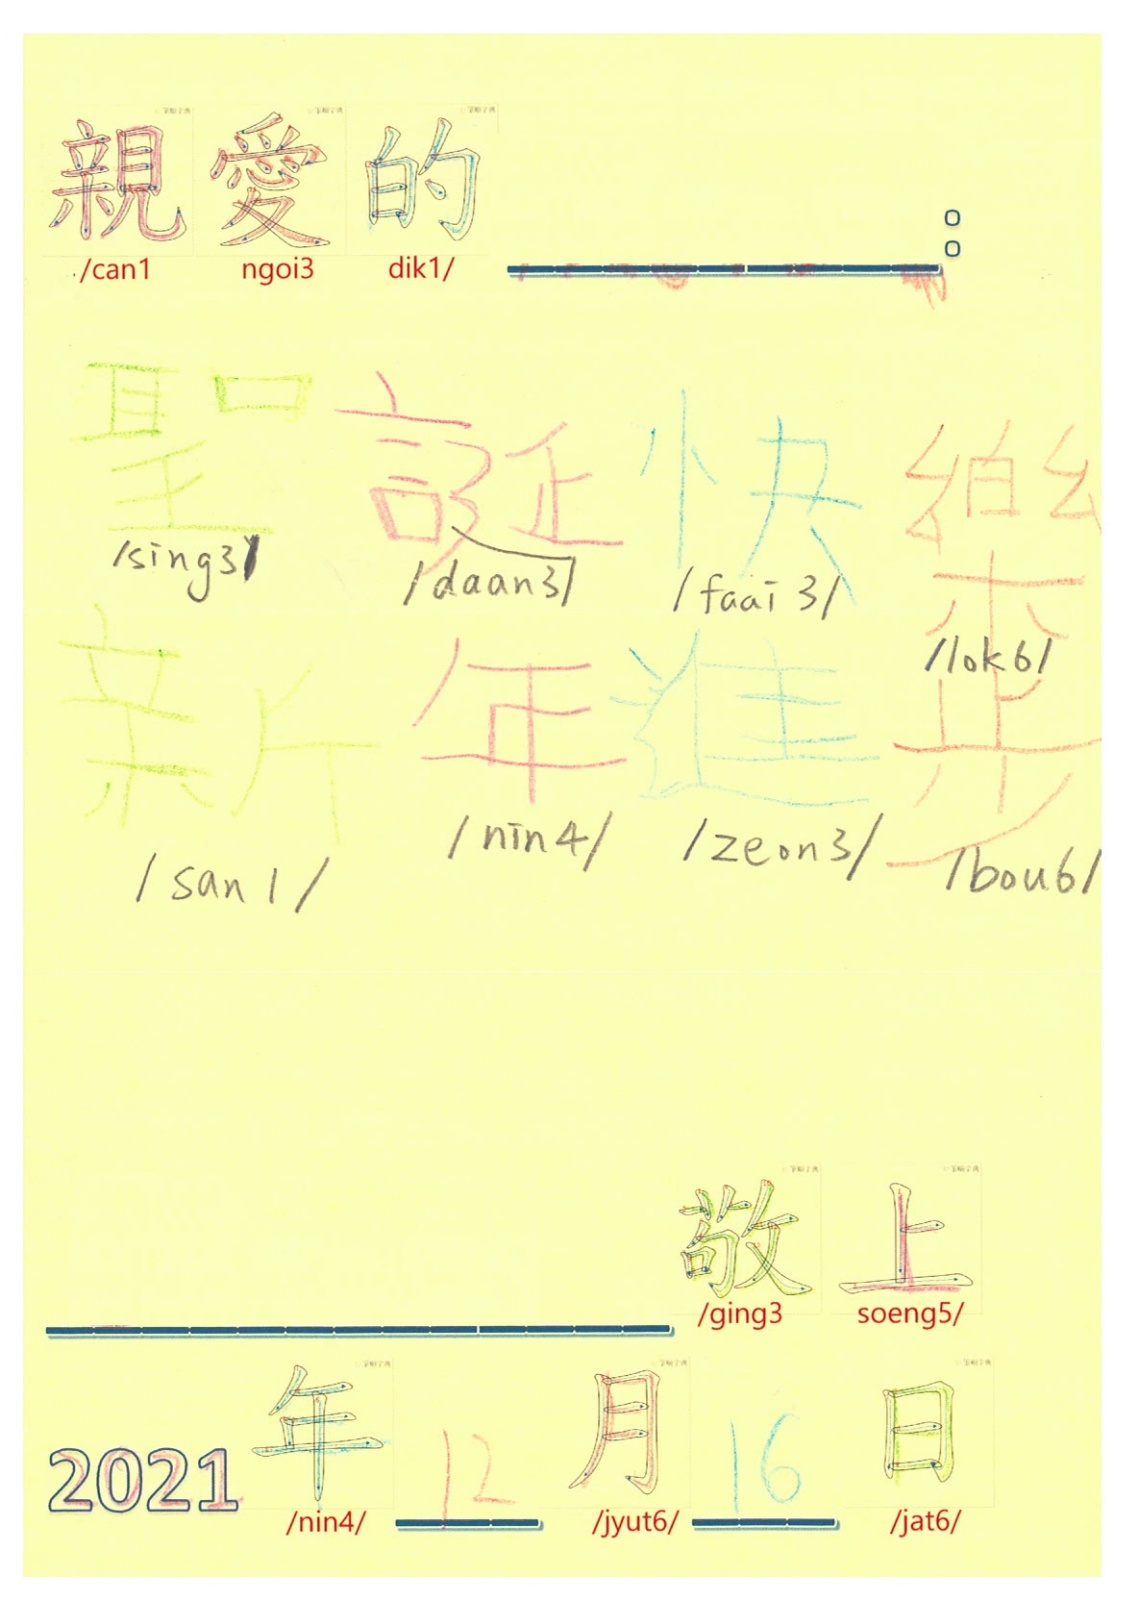 親愛的 :
/can1 ngoi3 dik1/
聖誕快樂
/sing3/ /daan3/ /faai3/ /lok6/
新年進步
/san1/ /nin4/ /zeon3/ /bou6/
敬上
/ging3 soeng5/
2021年12月16日
/nin4/ /jyut6/ /jat6/